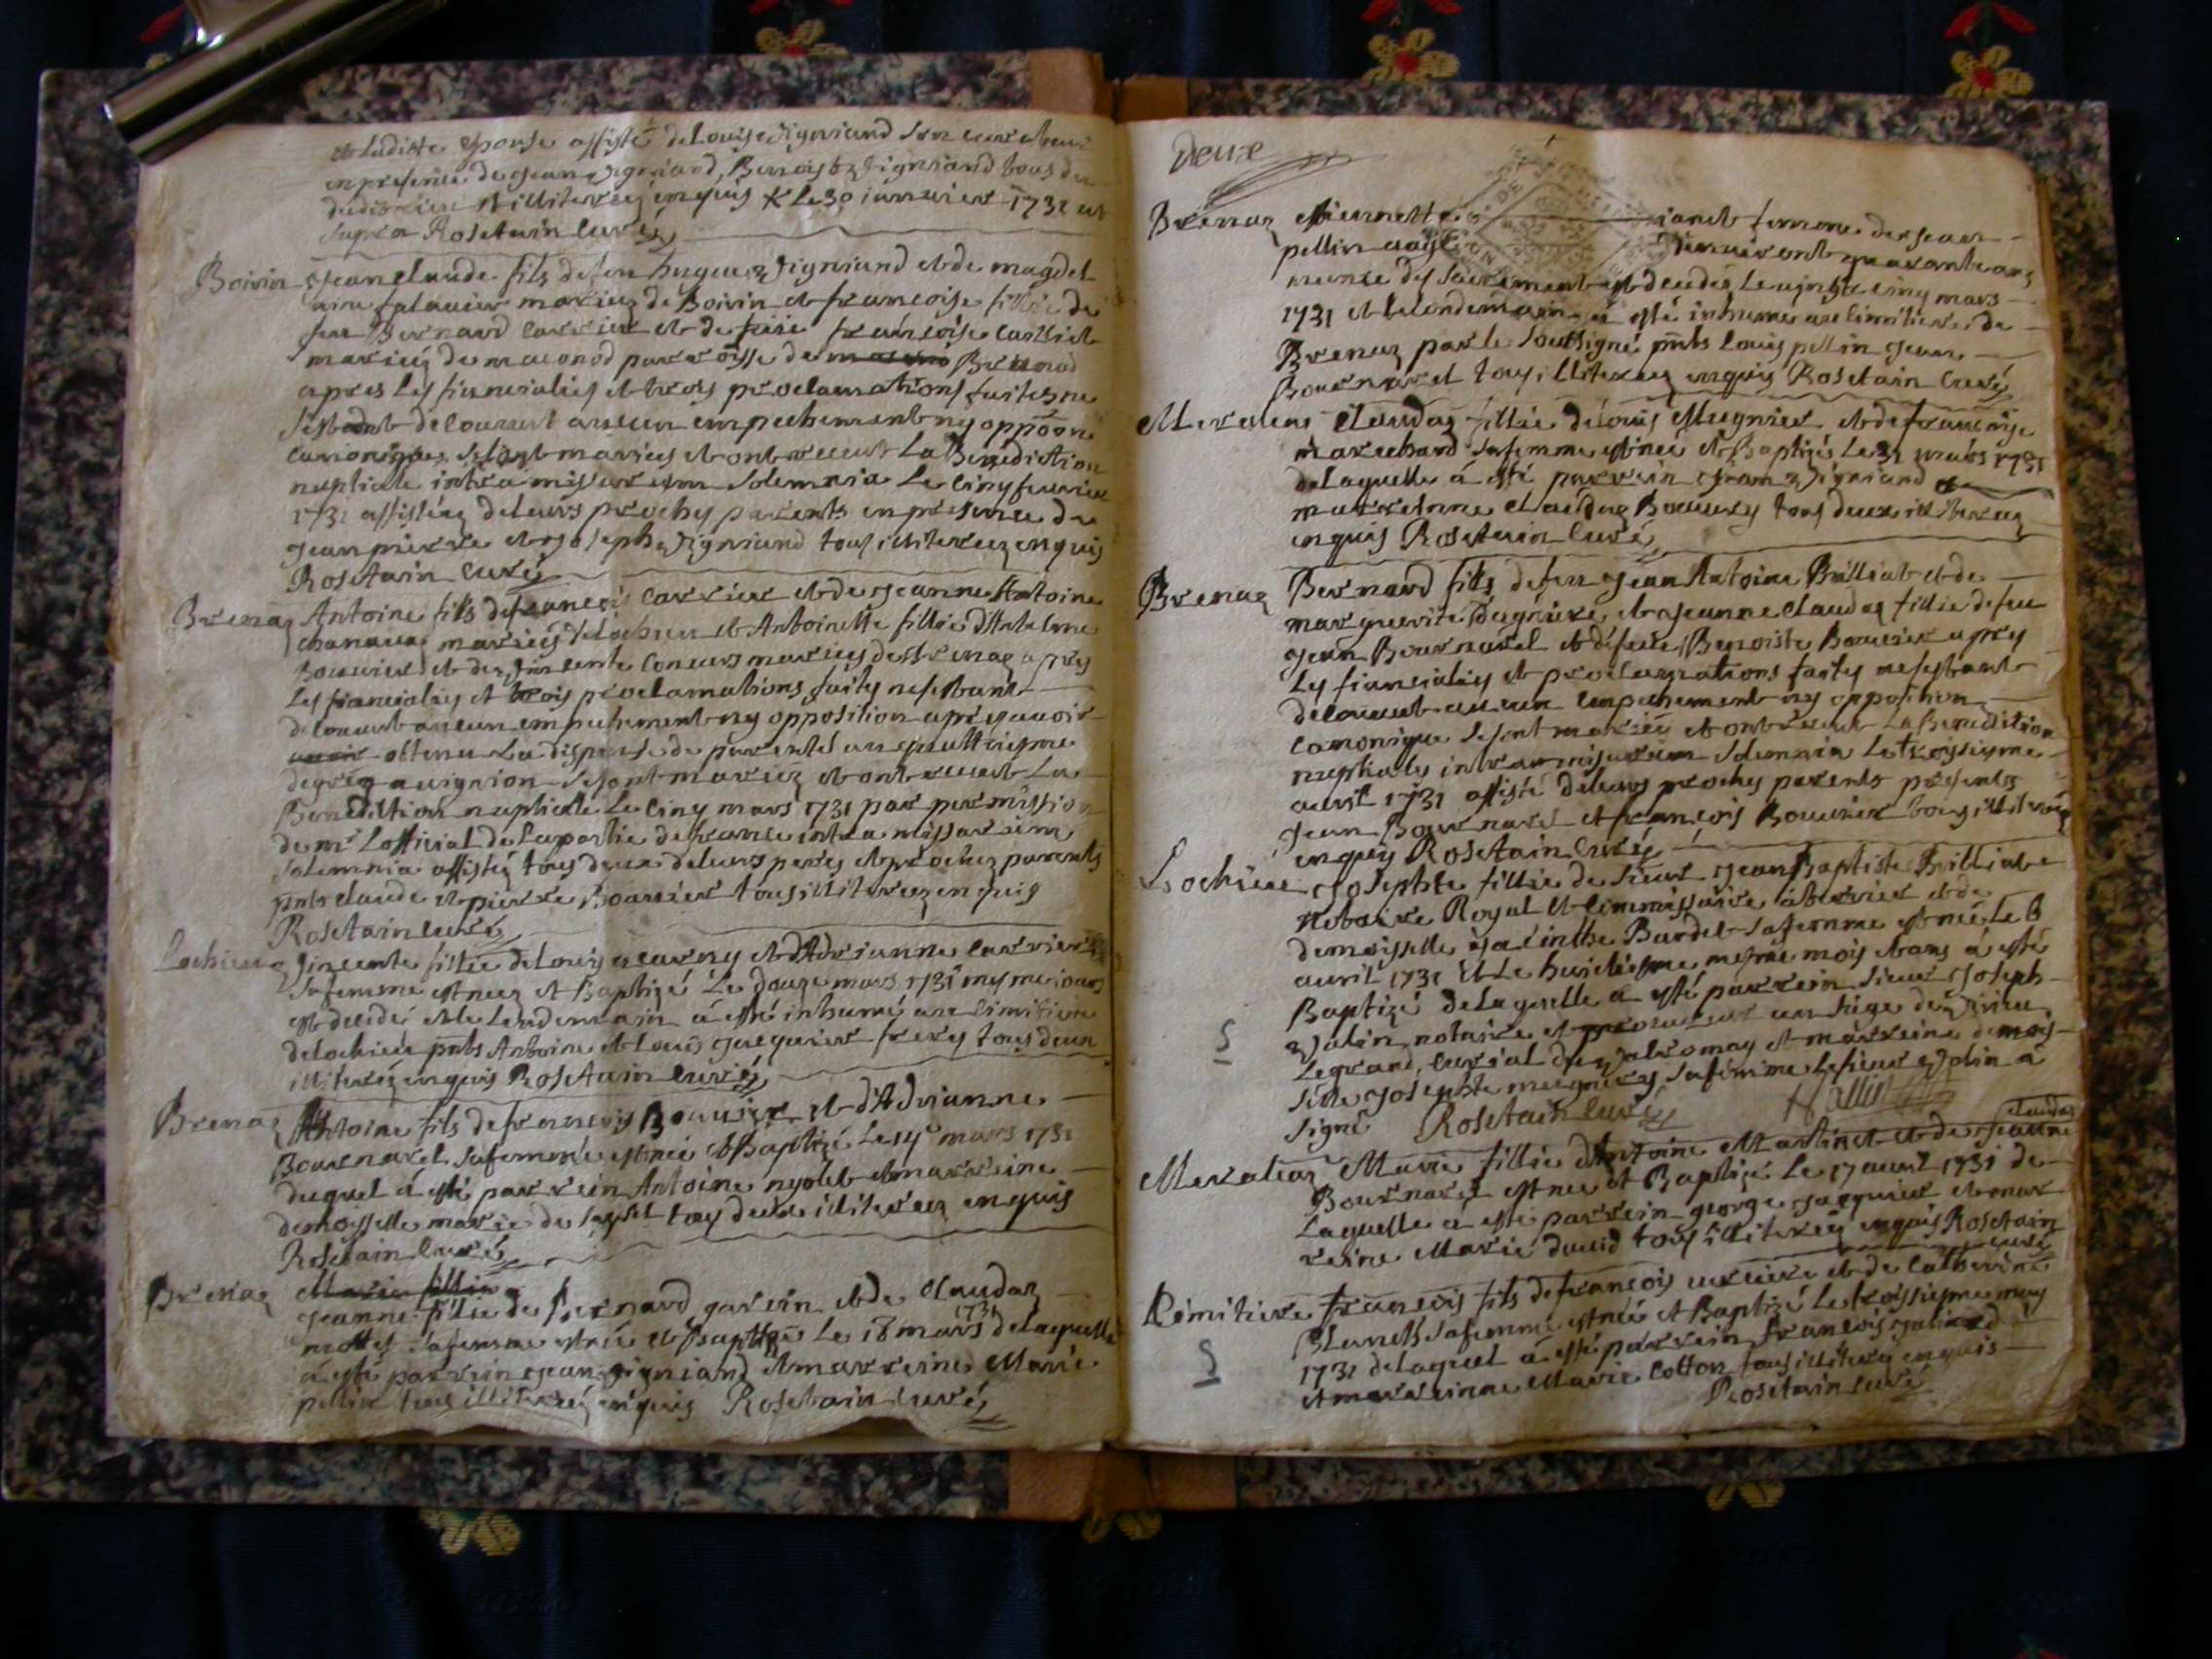 et ladiste epouse assisté de Louise Vigniand son
en presence de Jean Vigniand, Benoist Vigniand tous
dudit lieu illiterez enquis Le 30 ianvier 1731 ut
supra Rosetain curé
Boirin Jean claude fils de feu hugue Vigniand et de magdel
aine falavier mariez de Boirin et francoise fillie de
feu Bernard carrier et de francoise
mariez de parroisse de Brenod
apres les fiancialies et trois proclamations faites ne
sestant decouvert aucun empechement ny oppoon
canonique se sont mariés et ont receut La Benediction
nuptiale intra missarum solemnia Le cinq feurier
1731 assistéz de leurs prochy parents en presence de
Jean pierre et Joseph Vigniand tous illiterez enquis
Rosetain curé
Brenaz Antoine fils de francois carrier et de Jeanne Antoine
mariés de Lochieu et Antoinette fillie d'Antelme
Bouvier et de Vincente mariez de Brenaz apres
Les fiancialies et trois proclamations faites ne sestant
decouvert aucun empechement ny opposition apres avoir
obtenu La dispense de parentés au quattriesme
degrez a avignion se sont mariez et ont receut La
Benediction nuptiale Le cinq mars 1731 par permission
de mr Lofficial de La partie de france intra missarum
solemnia assistéz tous deux de leurs peres et prochez parents
pnts claude et pierre Bouvier tous illiterez enquis
Rosetain curé
Lochieu Vincente fillie de Louis et d'Adrianne carrier
sa femme est neez et Baptizé Le douze mars 1731 mesme iours
est decedé et le Lendemain á esté inhumé au cimitiere
de Lochieu pnts Antoine et Louis Juequier freres tous deux
illiterez enquis Rosetain curé
Brenaz Antoine fils de francois Bouvier et d'Adrianne
Bournarel sa femme est née et Baptizé Le 14e mars 1731
duquel á esté parrein Antoine nyolet et marreine
demoisselle marie de tous deux illiterez enquis
Rosetain curé
Brenaz Marie fillie
Jeanne fillie de Bernard garvin et de claudaz
mottet sa femme est née et Baptizée le 18 mars 1731 de laquelle
á esté parrein Jean Vigniand et marreine Marie
pellin tous illiterez enquis Rosetain curé
deux
Brenaz Estiennette femme de Jean
pellin aagé denviront quarante ans
munie des sacrement est decedez Le vingt cinq mars
1731 et Le lendemain a esté inhume au cimitiere de
Brenaz par le soussigné pnts Louis pellin Jean
Bournarel tous illiterez enquis Rosetain curé
Meraleaz Claudaz fillie de Louis Mugnier et de francoise
marechand sa femme est née et Baptizé Le 31 mars 1731
de Laquelle á esté parrein Jean Vigniand et
marreinne Claudaz Bouvery tous deux illiterez
enquis Rosetain curé
Brenaz Bernard fils de feu Jean Antoine Brilliat et de
marguerite et Jeanne Claudaz fillie de feu
Jean Bournarel et de feue Benoiste Bouvier apres
Les fiancialies et proclamations faites ne sestant
decouvert aucun empechement ny opposition
canonique se sont mariez et ont receut La Benediction
nuptiales intra missarum solemnia Le troysiesme
avril 1731 assisté de leurs prochy parents presents
Jean Bournarel et francois Bouvier tous illiterez
enquis Rosetain curé
Lochieu Josephte fillie de sieur Jean Baptiste Brilliat
Notaire Royal et commissaire á terrier et de
demoisselle iacinthe Bardet sa femme est née Le 6
auril 1731 et Le huictiesme mesme mois et ans á esté
Baptizé de Laquelle a esté parrein sieur Joseph
Valin notaire et procureur au siege de Virieu
Le grand, curial de Valromay et marreine demoi-
selle Josephte mugniery sa femme Le sieur Valin á
signé Rosetain curé Vallin
Meraleaz Marie fillie d'Antoine Martinet et de Jeanne claudaz
Bournarel est nee et Baptizé Le 17 auril 1731 de
Laquelle á esté parrein george Jacquier et mar
reine Marie david tous illiterez enquis Rosetain
curé
Cimitiere francois fils de francois et de catherine
sa femme est née et Baptizé Le troissiesme may
1731 de Laquel á esté parrein francois
et marreinne Marie cotton tous illiterez enquis
Rosetain curé